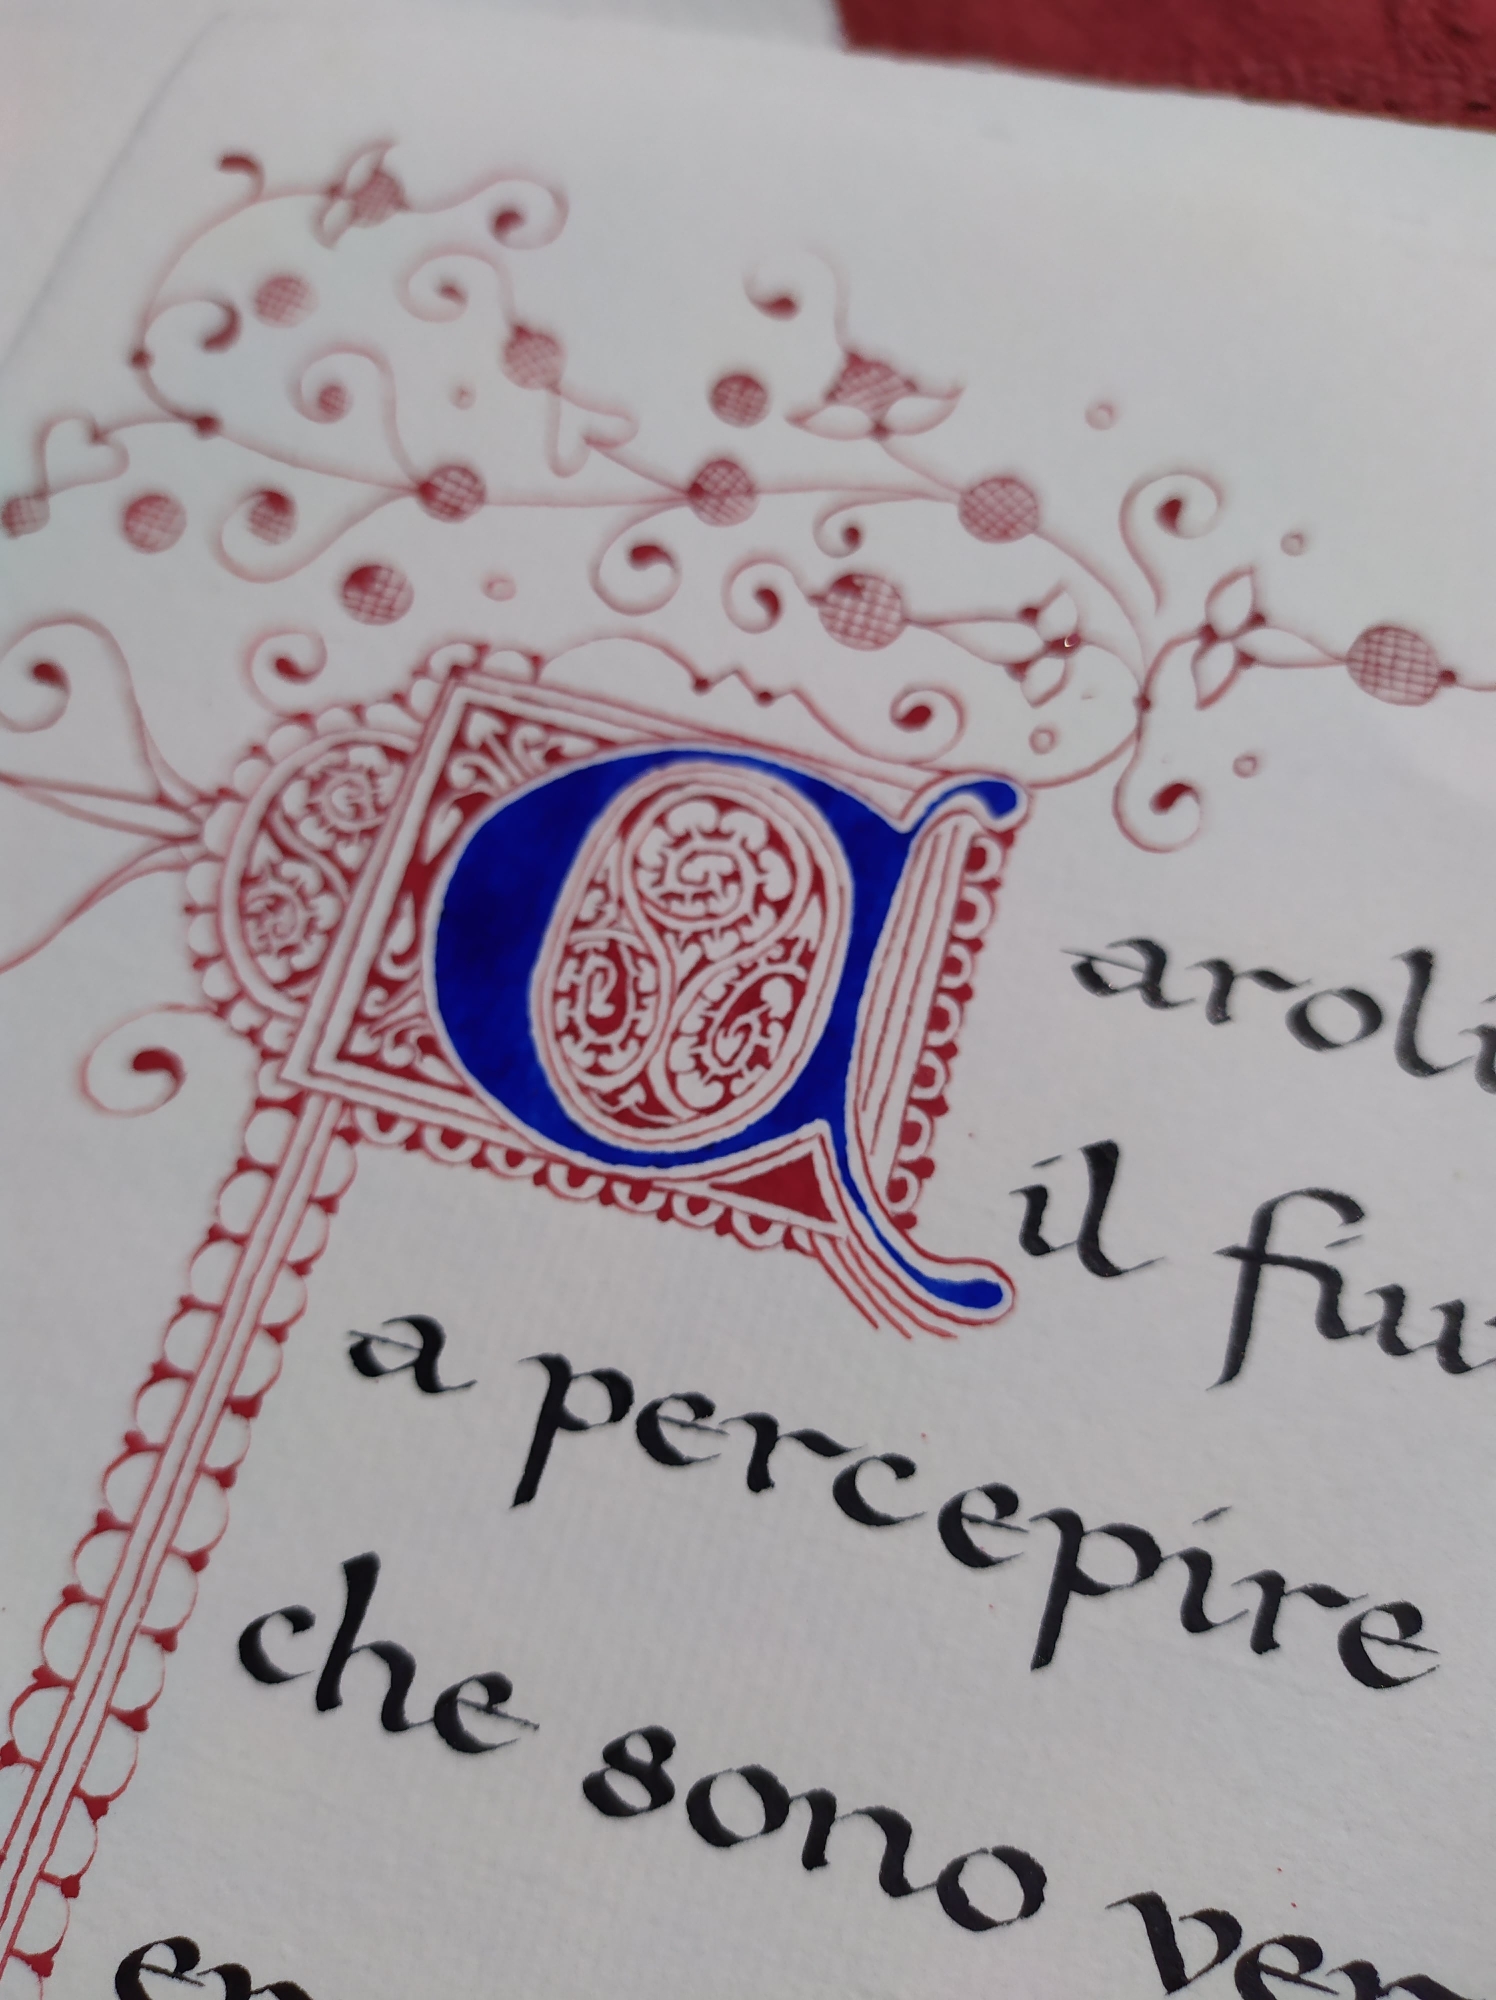 a aroli
il fiu
a percepire
che sono ven
en